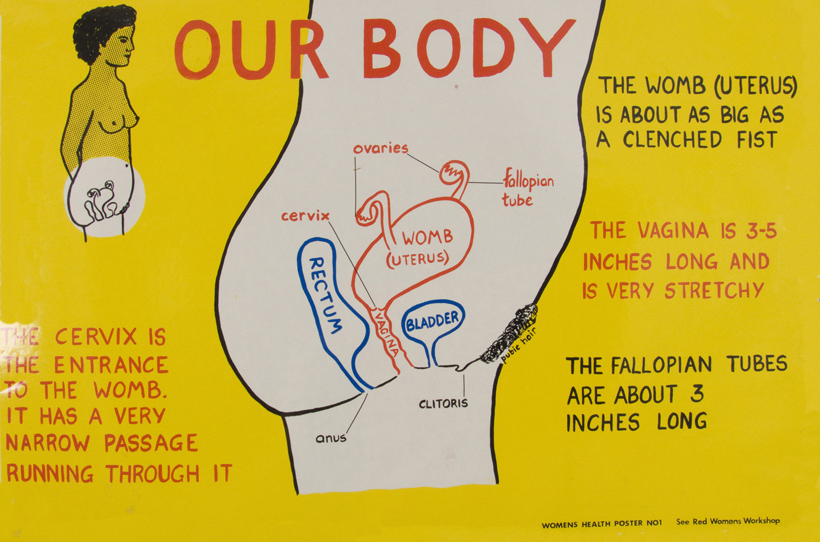 OUR BODY
THE WOMB (UTERUS)
IS ABOUT AS BIG AS
A CLENCHED FIST
ovaries
fallopian
tube
cervix
WOMB
(UTERUS)
RECTUM
VAGINA
BLADDER
pubic hair
CLITORIS
anus
THE VAGINA IS 3-5
INCHES LONG AND
IS VERY STRETCHY
THE CERVIX IS
THE ENTRANCE
TO THE WOMB.
IT HAS A VERY
NARROW PASSAGE
RUNNING THROUGH IT
THE FALLOPIAN TUBES
ARE ABOUT 3
INCHES LONG
WOMENS HEALTH POSTER NO1 See Red Womens Workshop